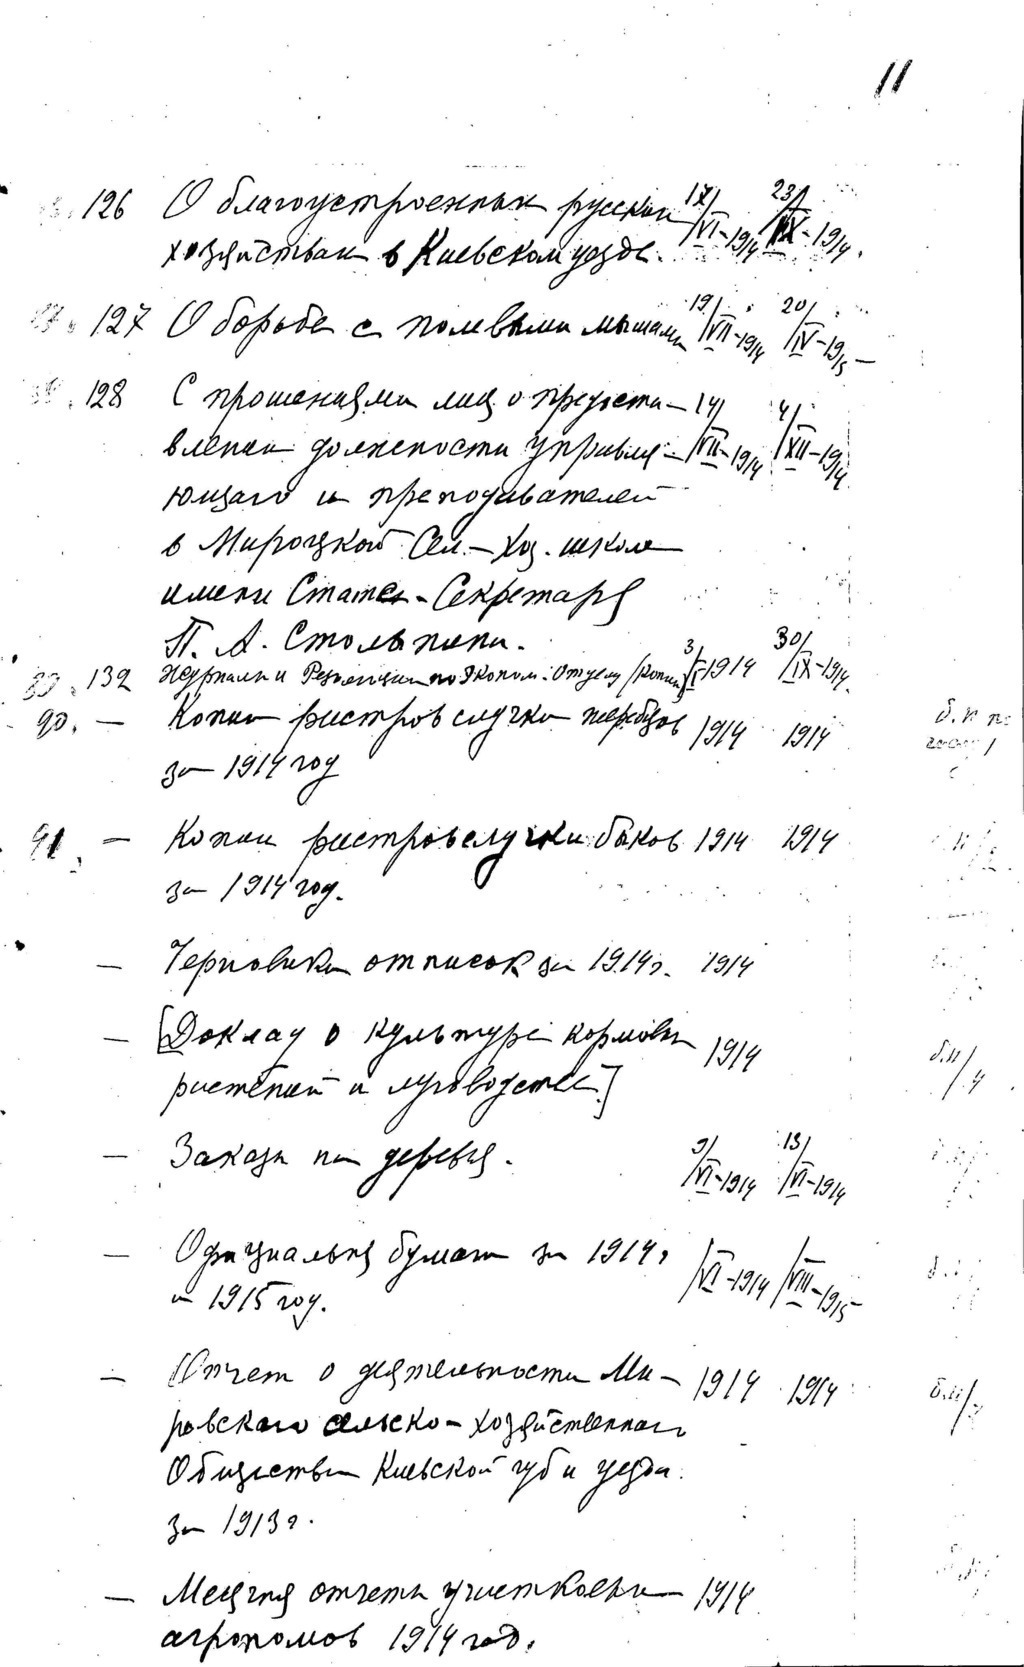 11
126 О благоустроенных русских 17/VI-1914 23/IX-1914.
хозяйствах в Киевском уезде.
127 О борьбе с полевыми мышами 19/VII-1914 20/IV-1915
128 С прошениями лиц о предста- 14/VII-1914 4/XII-1914
влении должности управля-
ющаго и преподавателей
в Мироцкой Сел.-Хоз. школе
имени Статс-Секретаря
П. А. Столыпина.
89. 132 Журналы и Резолюции по Эконом. Отделу (копии) 3/I 1914 30/IX-1914.
90. — Копии реестров случки жеребцов 1914 1914
за 1914 год
91. — Копии реестров случки быков 1914 1914
за 1914 год.
— Черновики отписок за 1914 г. 1914
— [Доклад о культуре кормовых 1914
растений и луговодстве]
— Заказы на деревья. 9/VI-1914 13/VI-1914
— Официальныя бумаги за 1914 г /VI-1914 /VIII-1915
и 1915 год.
— [Отчет о деятельности Ми- 1914 1914
ровскаго сельско-хозяйственнаго
Общества Киевской губ и уезда.
за 1913 г.
— Месячныя отчеты участковых 1914
агрономов 1914 год.